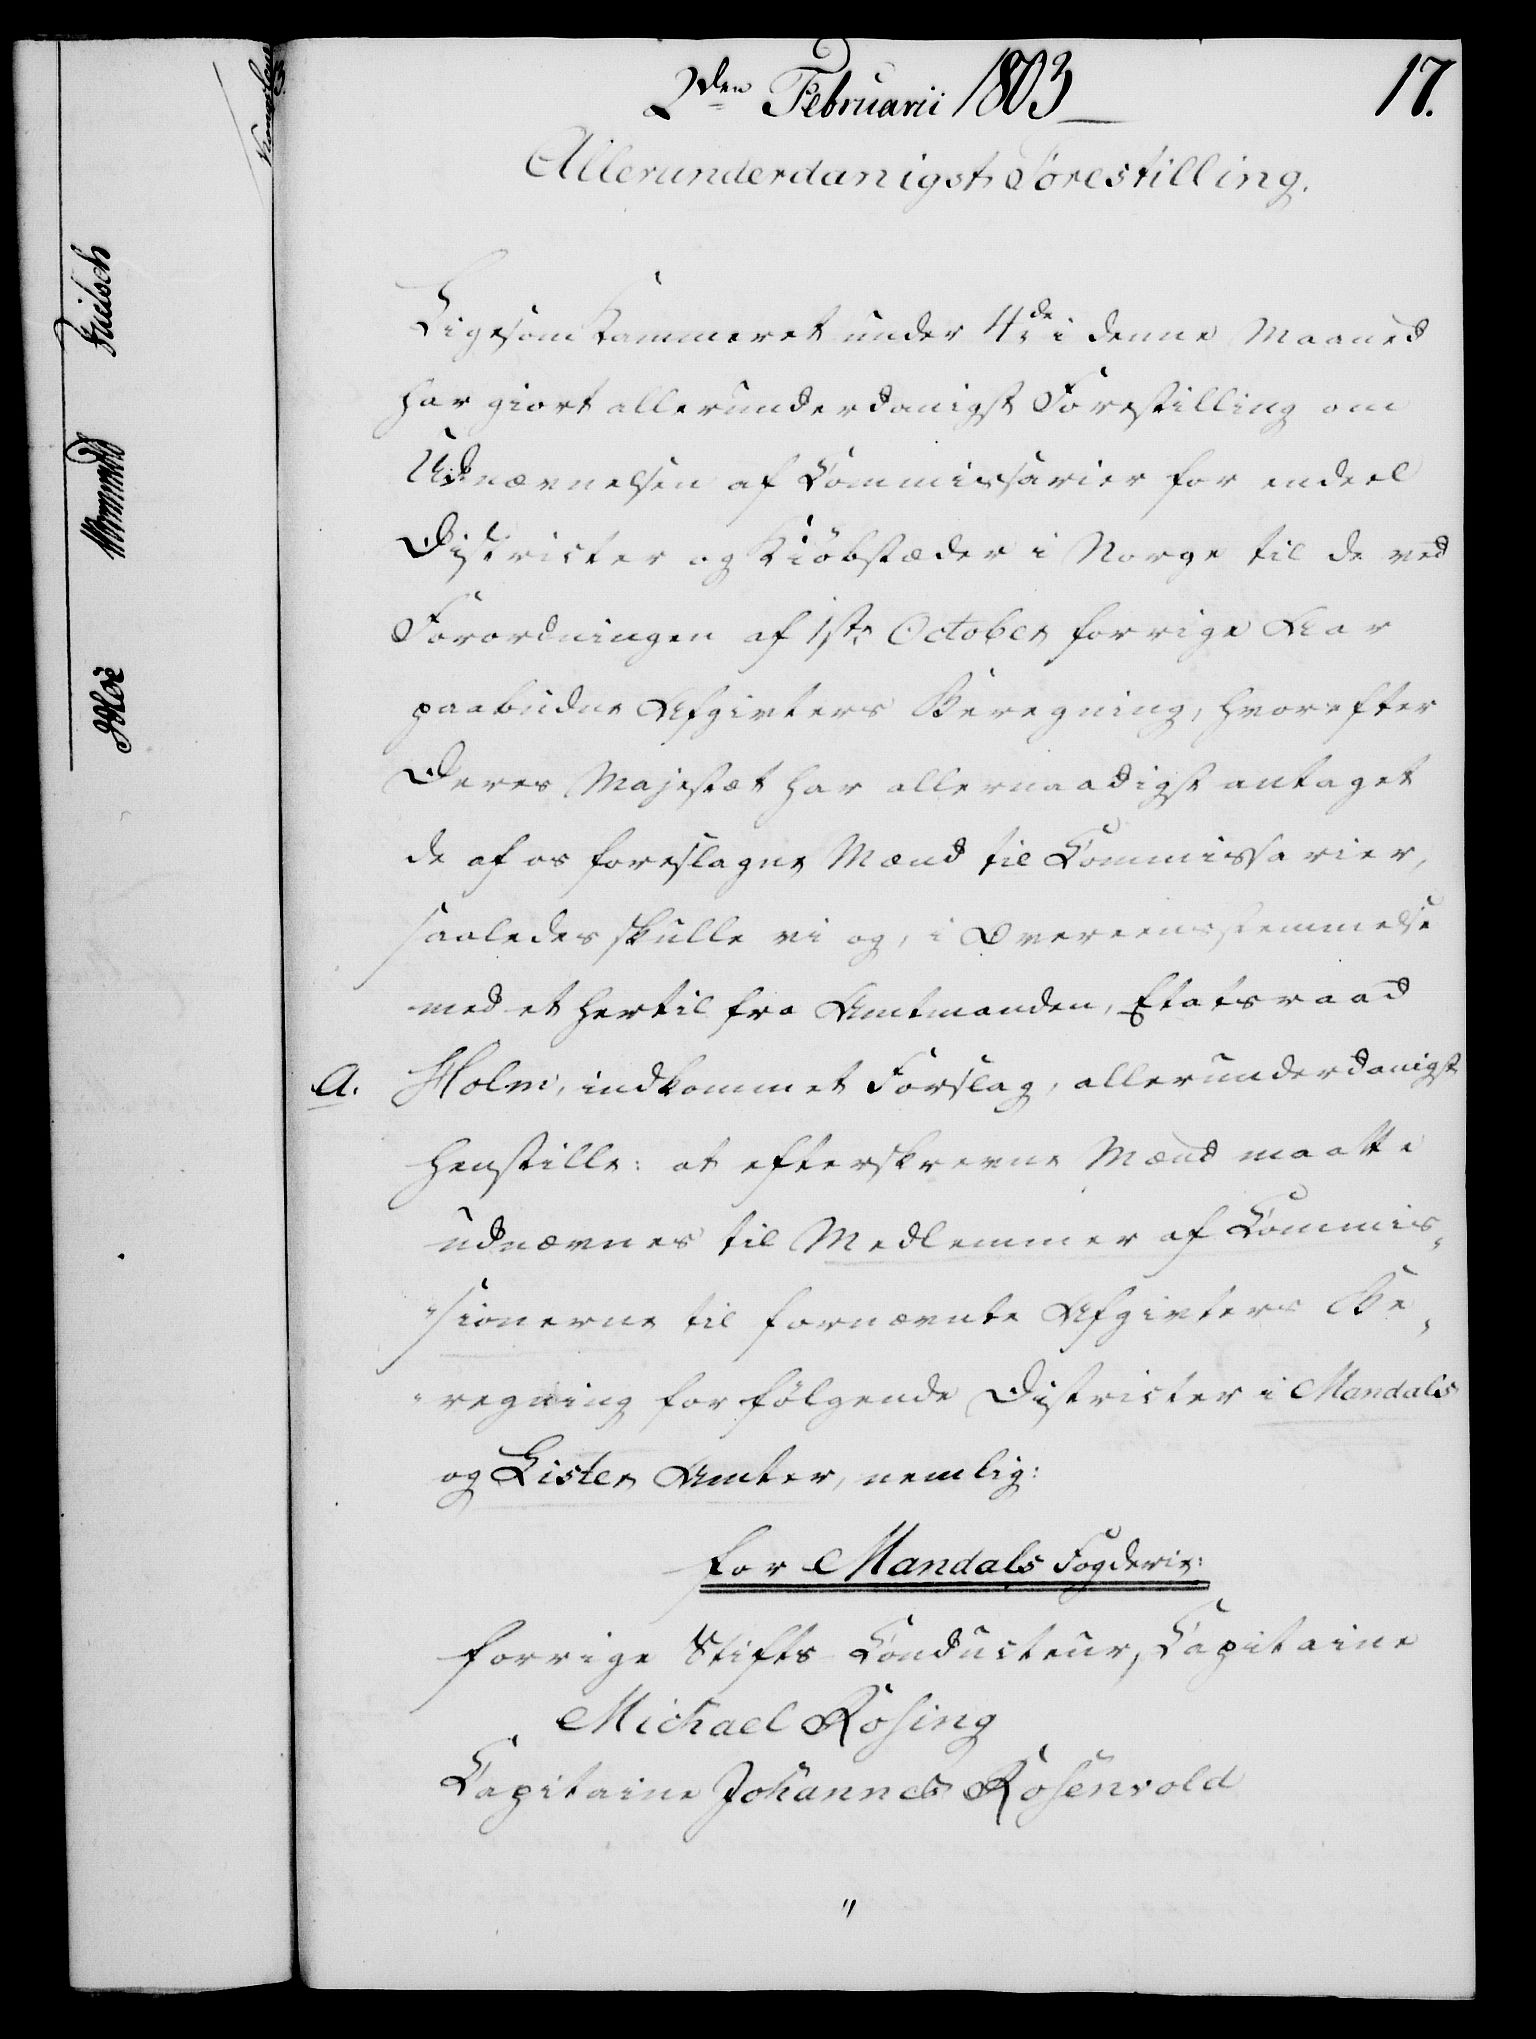 2den Februarii 1803
17.
Allerunderdanigst Forestilling.
Ligesom Kammeret under 4de i denne Maaned
har giort allerunderdanigst Forestilling om
Udnævnelsen af Commissarier for endeel
Districter og Kiøbstæder i Norge til de ved
Forordningen af 1ste October forrige Aar
paabudne Afgivters Beregning, hvorefter
Deres Majestæt har allernaadigst antaget
de af os foreslagne Mænd til Commissarier,
saaledes skulle vi og, i Overeensstemmelse
med et hertil fra Amtmanden, Etatsraad
A. Holm, indkommet Forslag, allerunderdanigst
henstille: at efterskrevne Mænd maatte
udnævnes til Medlemmer af Commis„
„sionerne til fornævnte Afgivters Be„
„regning for følgende Districter i Mandals
og Lister Amter, nemlig:
for Mandals Fogderie:
forrige Stifts-Conducteur, Capitaine
Michael Rosing
Capitaine Johannes Rosenvold
"
Frielsch
Wormskiold
Hoë